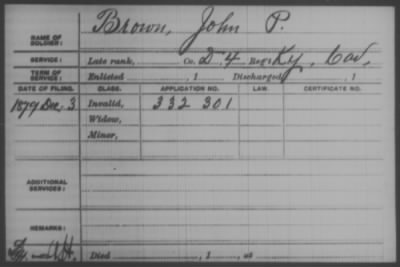 NAME OF SOLDIER: Brown, John P.
SERVICE: Late rank, Co. D, 4 Reg't Ky. Cav.
TERM OF SERVICE: Enlisted , 1 Discharged , 1
DATE OF FILING. CLASS. APPLICATION NO. LAW. CERTIFICATE NO.
1879 Dec. 3 Invalid, 332 301
Widow,
Minor,
ADDITIONAL SERVICES:
REMARKS:
Died , 1 , at